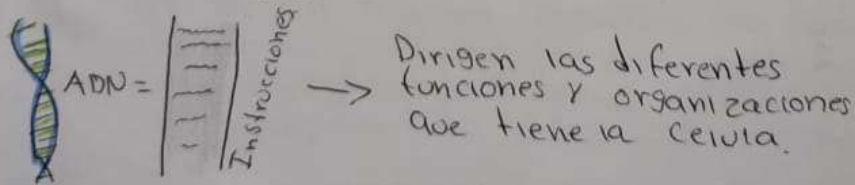 ADN =
Instrucciones
→ Dirigen las diferentes
funciones y organizaciones
que tiene la celula.